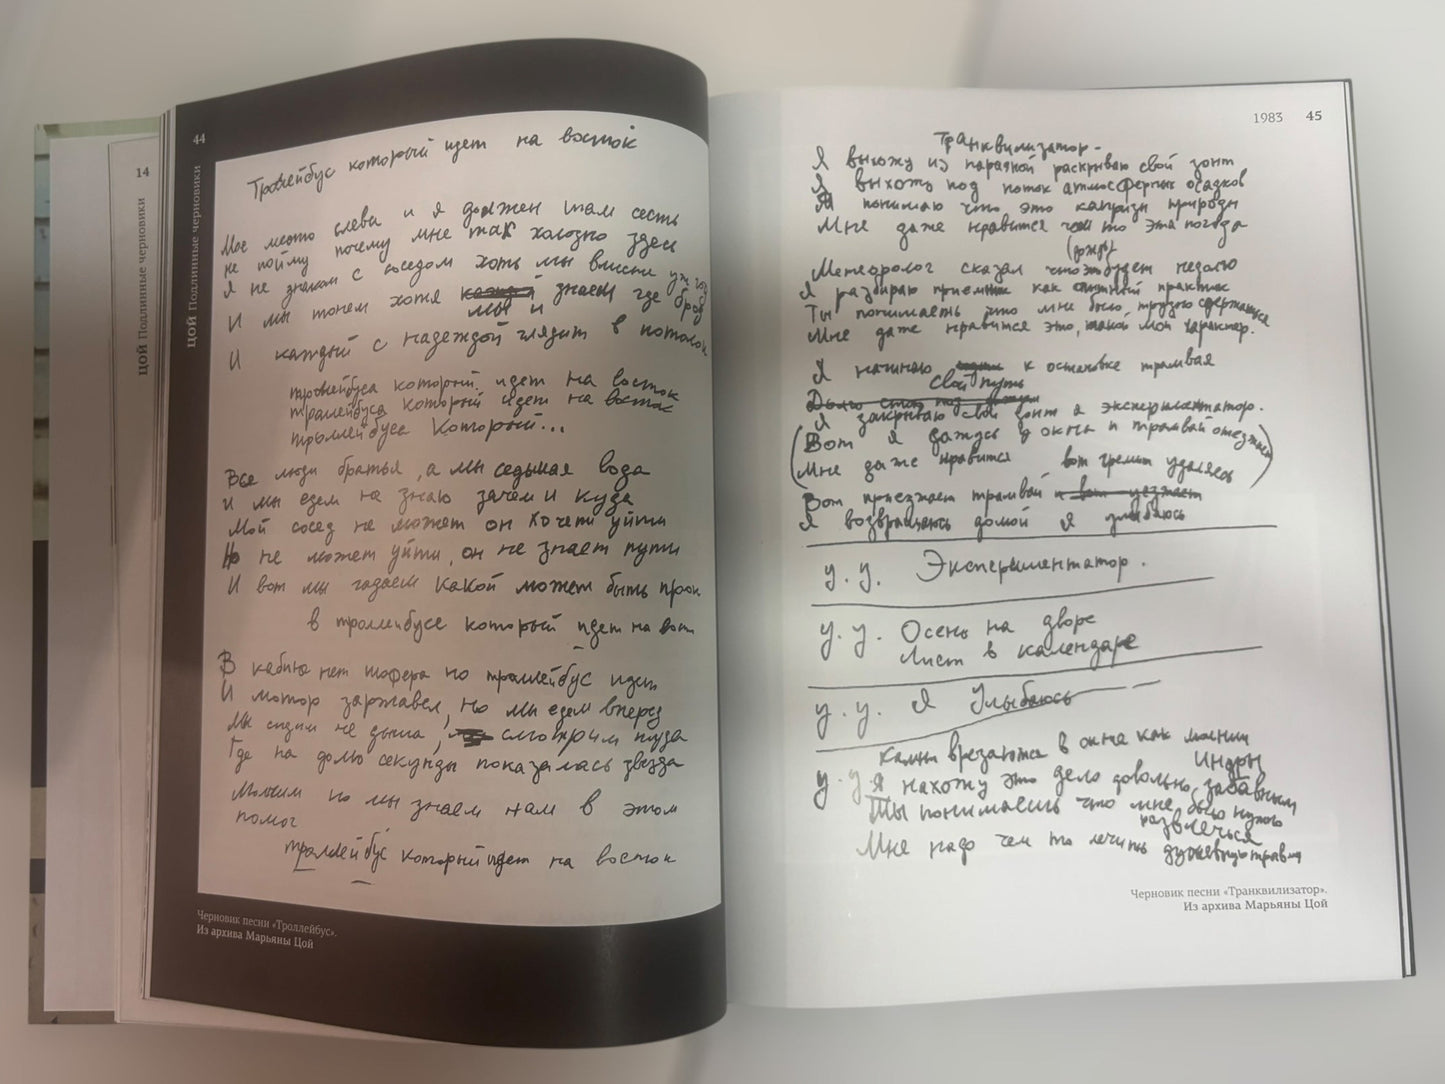 14
ЦОЙ Подлинные черновики
44
ЦОЙ Подлинные черновики
Троллейбус который идет на восток
Мое место слева и я должен там сесть
не пойму почему мне так холодно здесь
Я не знаком с соседом хоть мы вместе уж год
И мы тонем хотя каждый знаем где брод
мы и
И каждый с надеждой глядит в потолок
троллейбуса который идет на восток
троллейбуса который идет на восток
троллейбуса который...
Все люди братья, а мы седьмая вода
и мы едем на знаю зачем и куда
Мой сосед не может он хочет уйти
Но не может уйти, он не знает пути
И вот мы гадаем какой может быть прок
в троллейбусе который идет на вост
В кабине нет шофера но троллейбус идет
И мотор заржавел, но мы едем вперед
Мы сидим не дыша, смотрим туда
Где на долю секунды показалась звезда
Молчим но мы знаем нам в этом
помог
троллейбус который идет на восток
Черновик песни «Троллейбус».
Из архива Марьяны Цой
1983 45
Транквилизатор-
Я выхожу из парадной раскрываю свой зонт
Я выхожу под поток атмосферных осадков
Я понимаю что это капризы природы
Мне даже нравится что то эта погода
(дождь)
Метеоролог сказал что это будет недолго
Я разбираю приемник как практик
Ты понимаешь что мне было трудно сдержаться
Мне даже нравится это, такой мой характер.
Я начинаю к остановке трамвая
свой путь
Долго стою под
Я закрываю свой зонт а экспериментатор.
(Вот я дождусь у окна и трамвай отезжает
Мне даже нравится вот гремит удаляясь)
Вот приезжает трамвай и вот уезжает
Я возвращаюсь домой я улыбаюсь
у. у. Экспериментатор.
у. у. Осень на дворе
Лист в календаре
у. у. Я Улыбаюсь
Камни врезаются в окна как молнии
Индры
у. у. Я нахожу это дело довольно забавным
Ты понимаешь что мне было нужно
развлечься
Мне надо чем то лечить душевную травму
Черновик песни «Транквилизатор».
Из архива Марьяны Цой